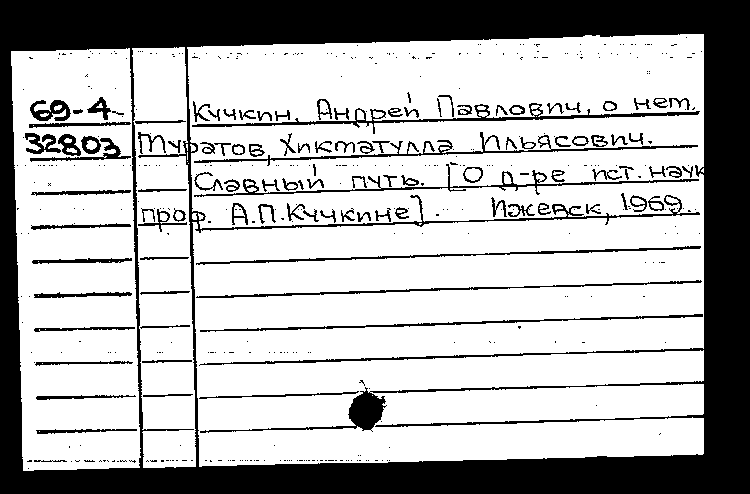 69-4 Кучкин, Андрей Павлович, о нем.
32803 Муратов, Хикматулла Ильясович.
Славный путь. [О д-ре ист. наук
проф. А.П.Кучкине]. Ижевск, 1969.